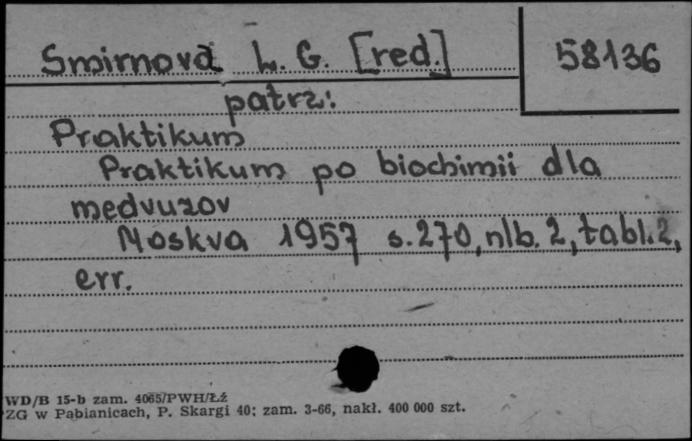 Smirnova L. G. [red.]
58136
patrz:
Praktikum
Praktikum po biochimii dla
medvuzov
Moskva 1957 s. 270, nlb. 2, tabl. 2,
err.
WD/B 15-b zam. 4065/PWH/Łź
ZG w Pabianicach, P. Skargi 40; zam. 3-66, nakł. 400 000 szt.